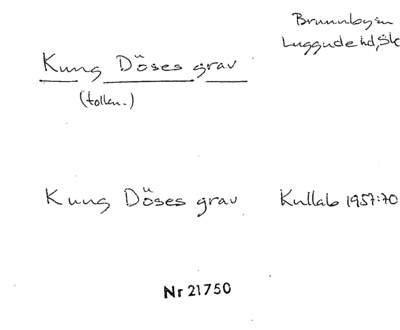 Brunnby sn
Luggude hd, Sk
Kung Döses grav
(tolkn.)
Kung Döses grav
Kullab 1957:70
Nr 21750